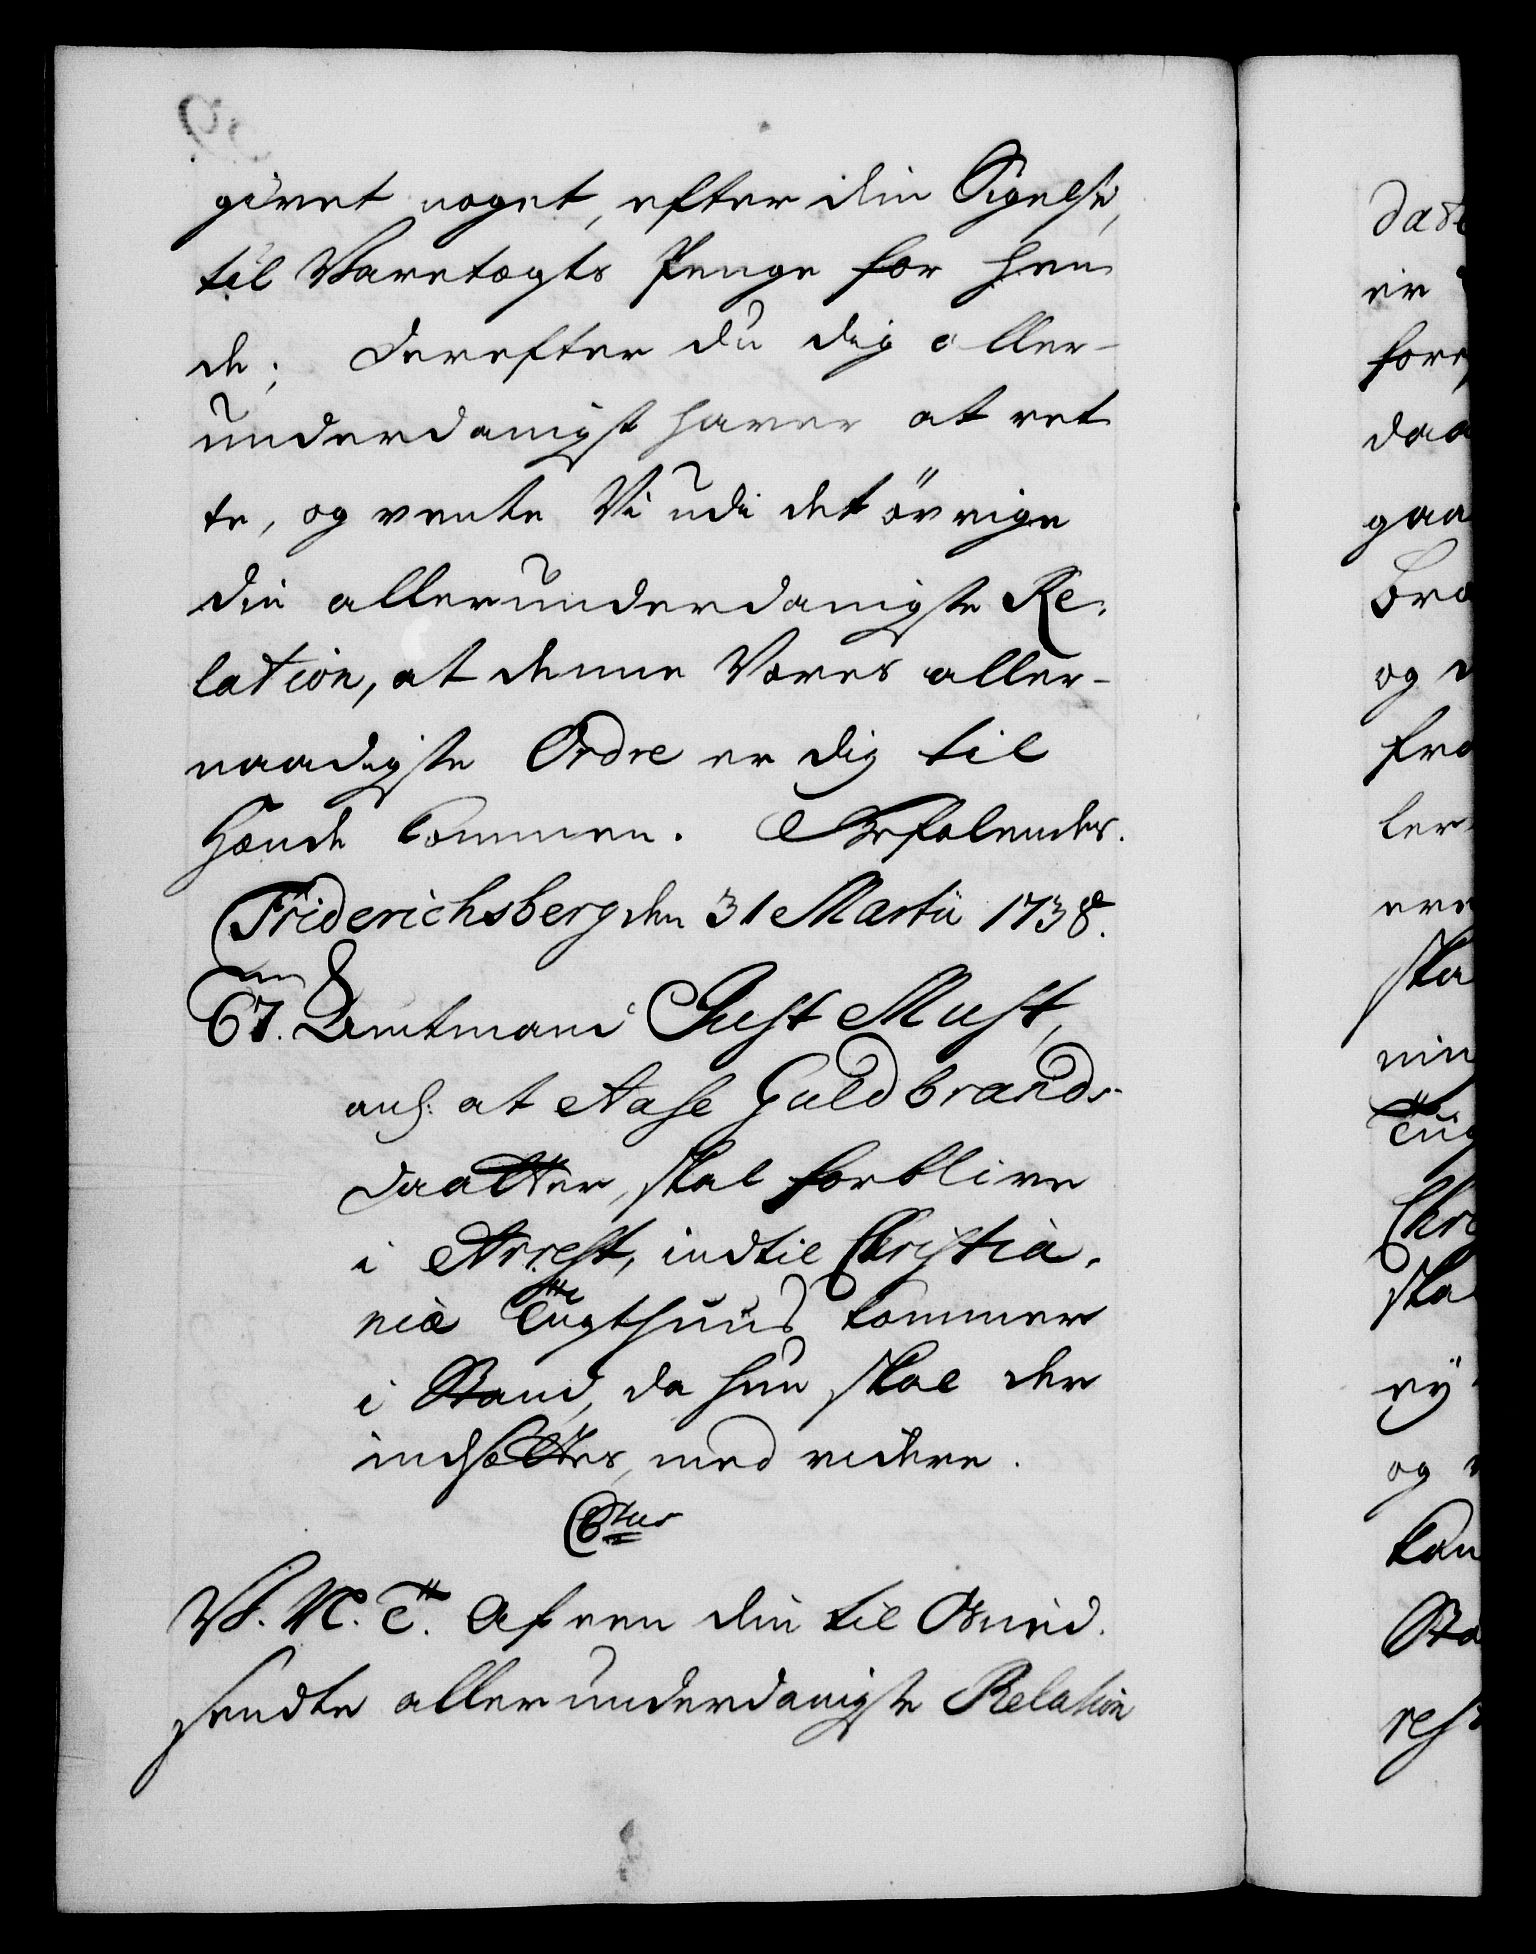 givet noget, efter din Sigelse,
til Varetægts Penge for hen
de; Derefter du dig aller-
underdanigst haver at ret
te, og vente Vi udi det övrige
din allerunderdanigste Re-
lation, at denne Vores aller-
naadigste Ordre er dig til
Hænde kommen. Befalendes.
Friderichsberg den 31 Martii 1738.
67. Amtmand Just Must,
anl: at Aase Guldbrands-
daatter, skal forblive
i Arrest, indtil Christia-
niæ Tugthuus kommer
i Stand, da hun skal der
indsættes, med videre.
C6tus
V. N. T. Af een din til Os ind-
sendte allerunderdanigste Relation
da
er
for
daa
gaa
bra
og
fra
ler
ere
ska
min
Tüg
Chri
ska
ey
og
kan
Sta
rest